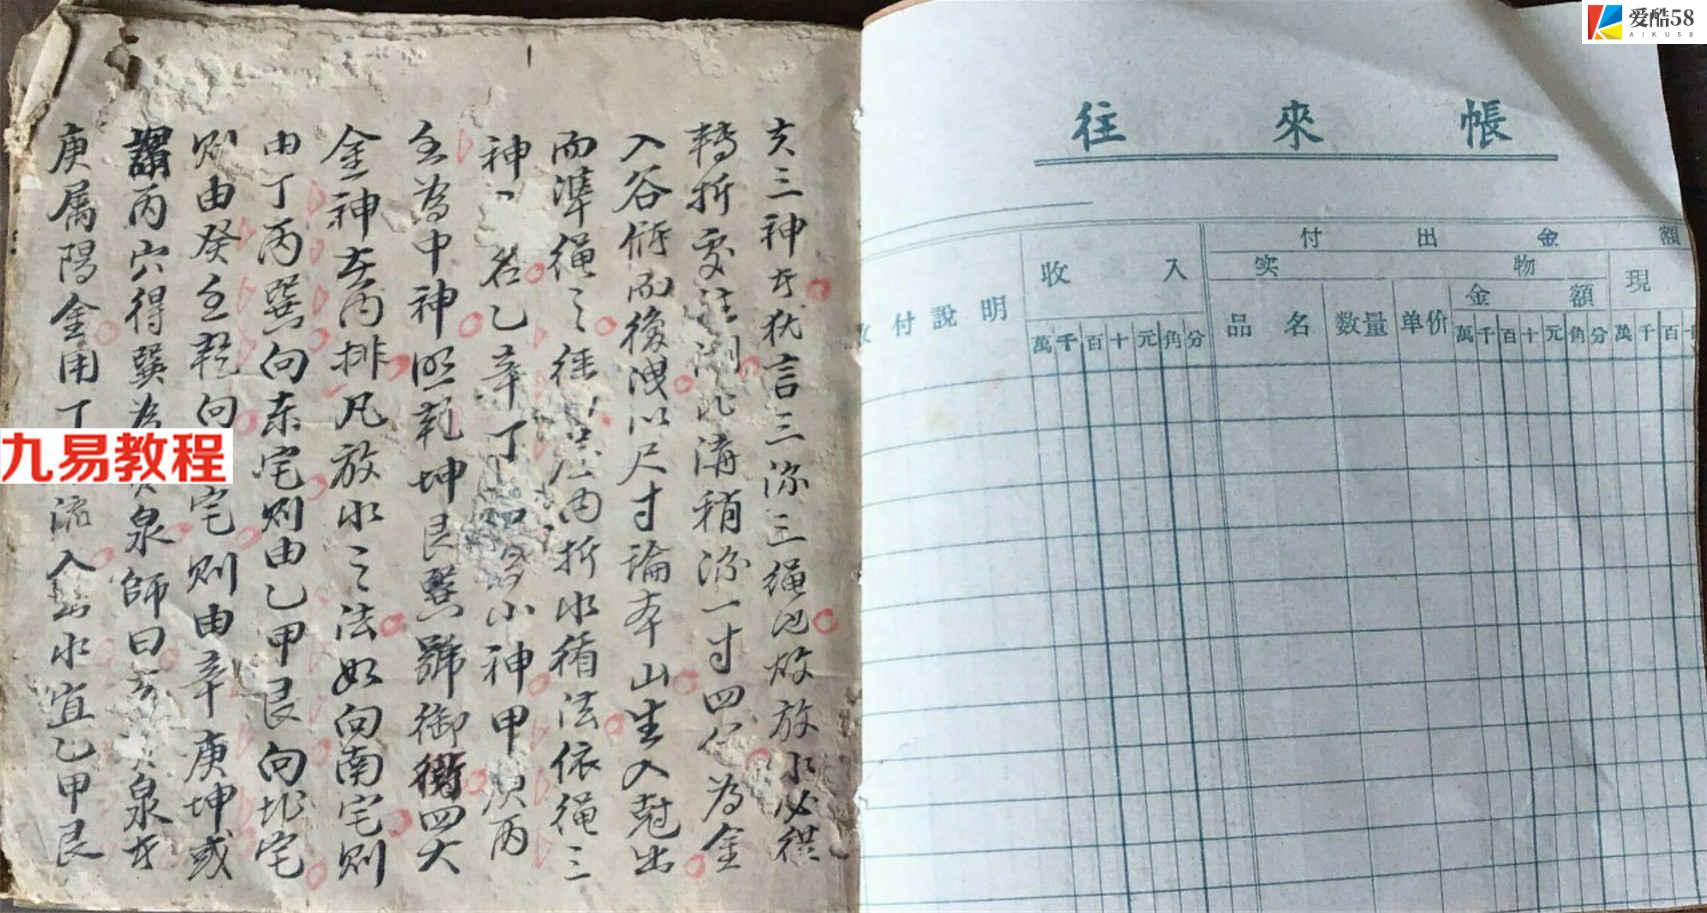 亥三神者犹言三泒三绳也故放水必從
轉折處註湖比溝稍深一寸四分為金
入谷俯而後洩以尺寸論本山生入尅出
而準繩之 折水循法依繩三
神 名乙辛丁 小神甲 丙
壬為中神照乾坤艮巽號御街四大
金神在内排凡放水之法如向南宅則
由丁丙巽向东宅则由乙甲艮向北宅
则由癸壬乾向 宅则由辛庚坤或
謂丙穴得巽為 泉師曰 泉者
庚属陽金用丁 流入 水宜乙甲艮
九易教程
爱酷58
AIKU58
往來帳
付出金額
收入
实物
現
付說明
金額
品名
数量
单价
萬千百十元角分
萬千百十元角分
萬千百十